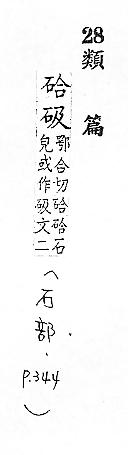 28 類篇
硆砐
鄂合切硆硆石
皃或作砐文二
(石部.
P.344)